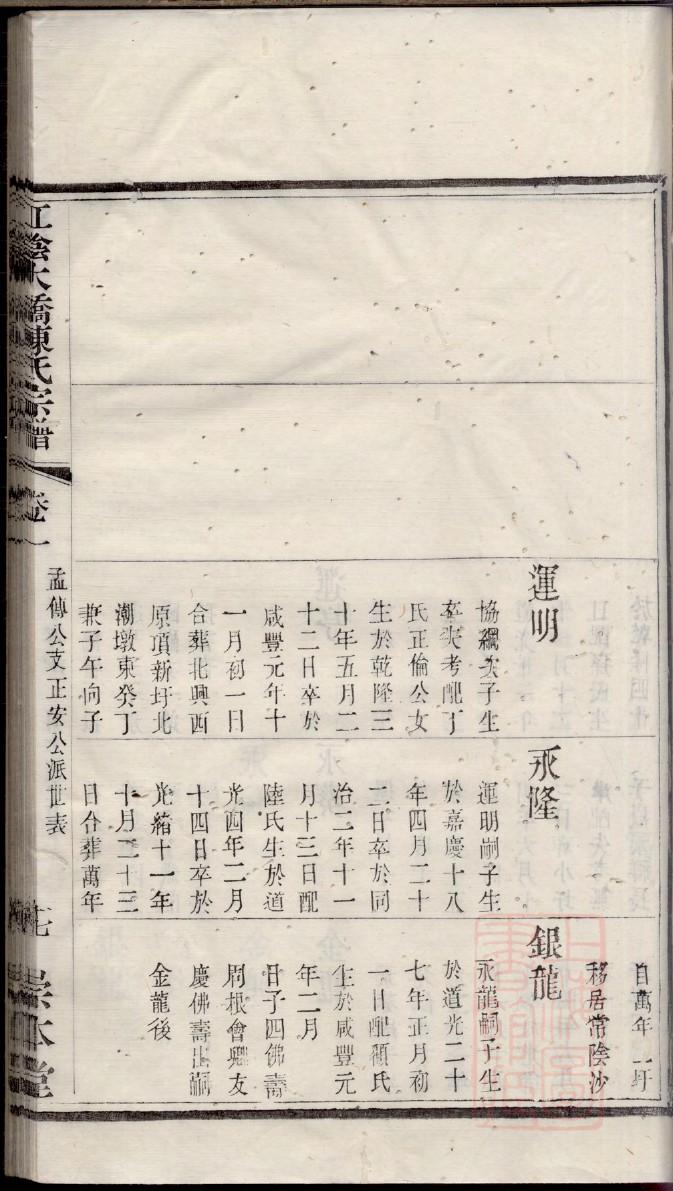 自萬年一圩
移居常陰沙
運明
協綱次子生
卒失考配丁
氏正倫公女
生於乾隆三
十年五月二
十二日卒於
咸豐元年十
一月初一日
合葬北興西
原項新圩北
潮墩東癸丁
兼子午向子
永隆
運明嗣子生
於嘉慶十八
年四月二十
二日卒於同
治二年十一
月十三日配
陸氏生於道
光四年二月
十四日卒於
光緒十一年
十月二十三
日合葬萬年
銀龍
永龍嗣子生
於道光二十
七年正月初
一日配顧氏
生於咸豐元
年二月
日子四佛壽
周根會興友
慶佛壽出嗣
金龍後
江陰大橋陳氏宗譜
卷一
孟傳公支正安公派世表
崇本堂